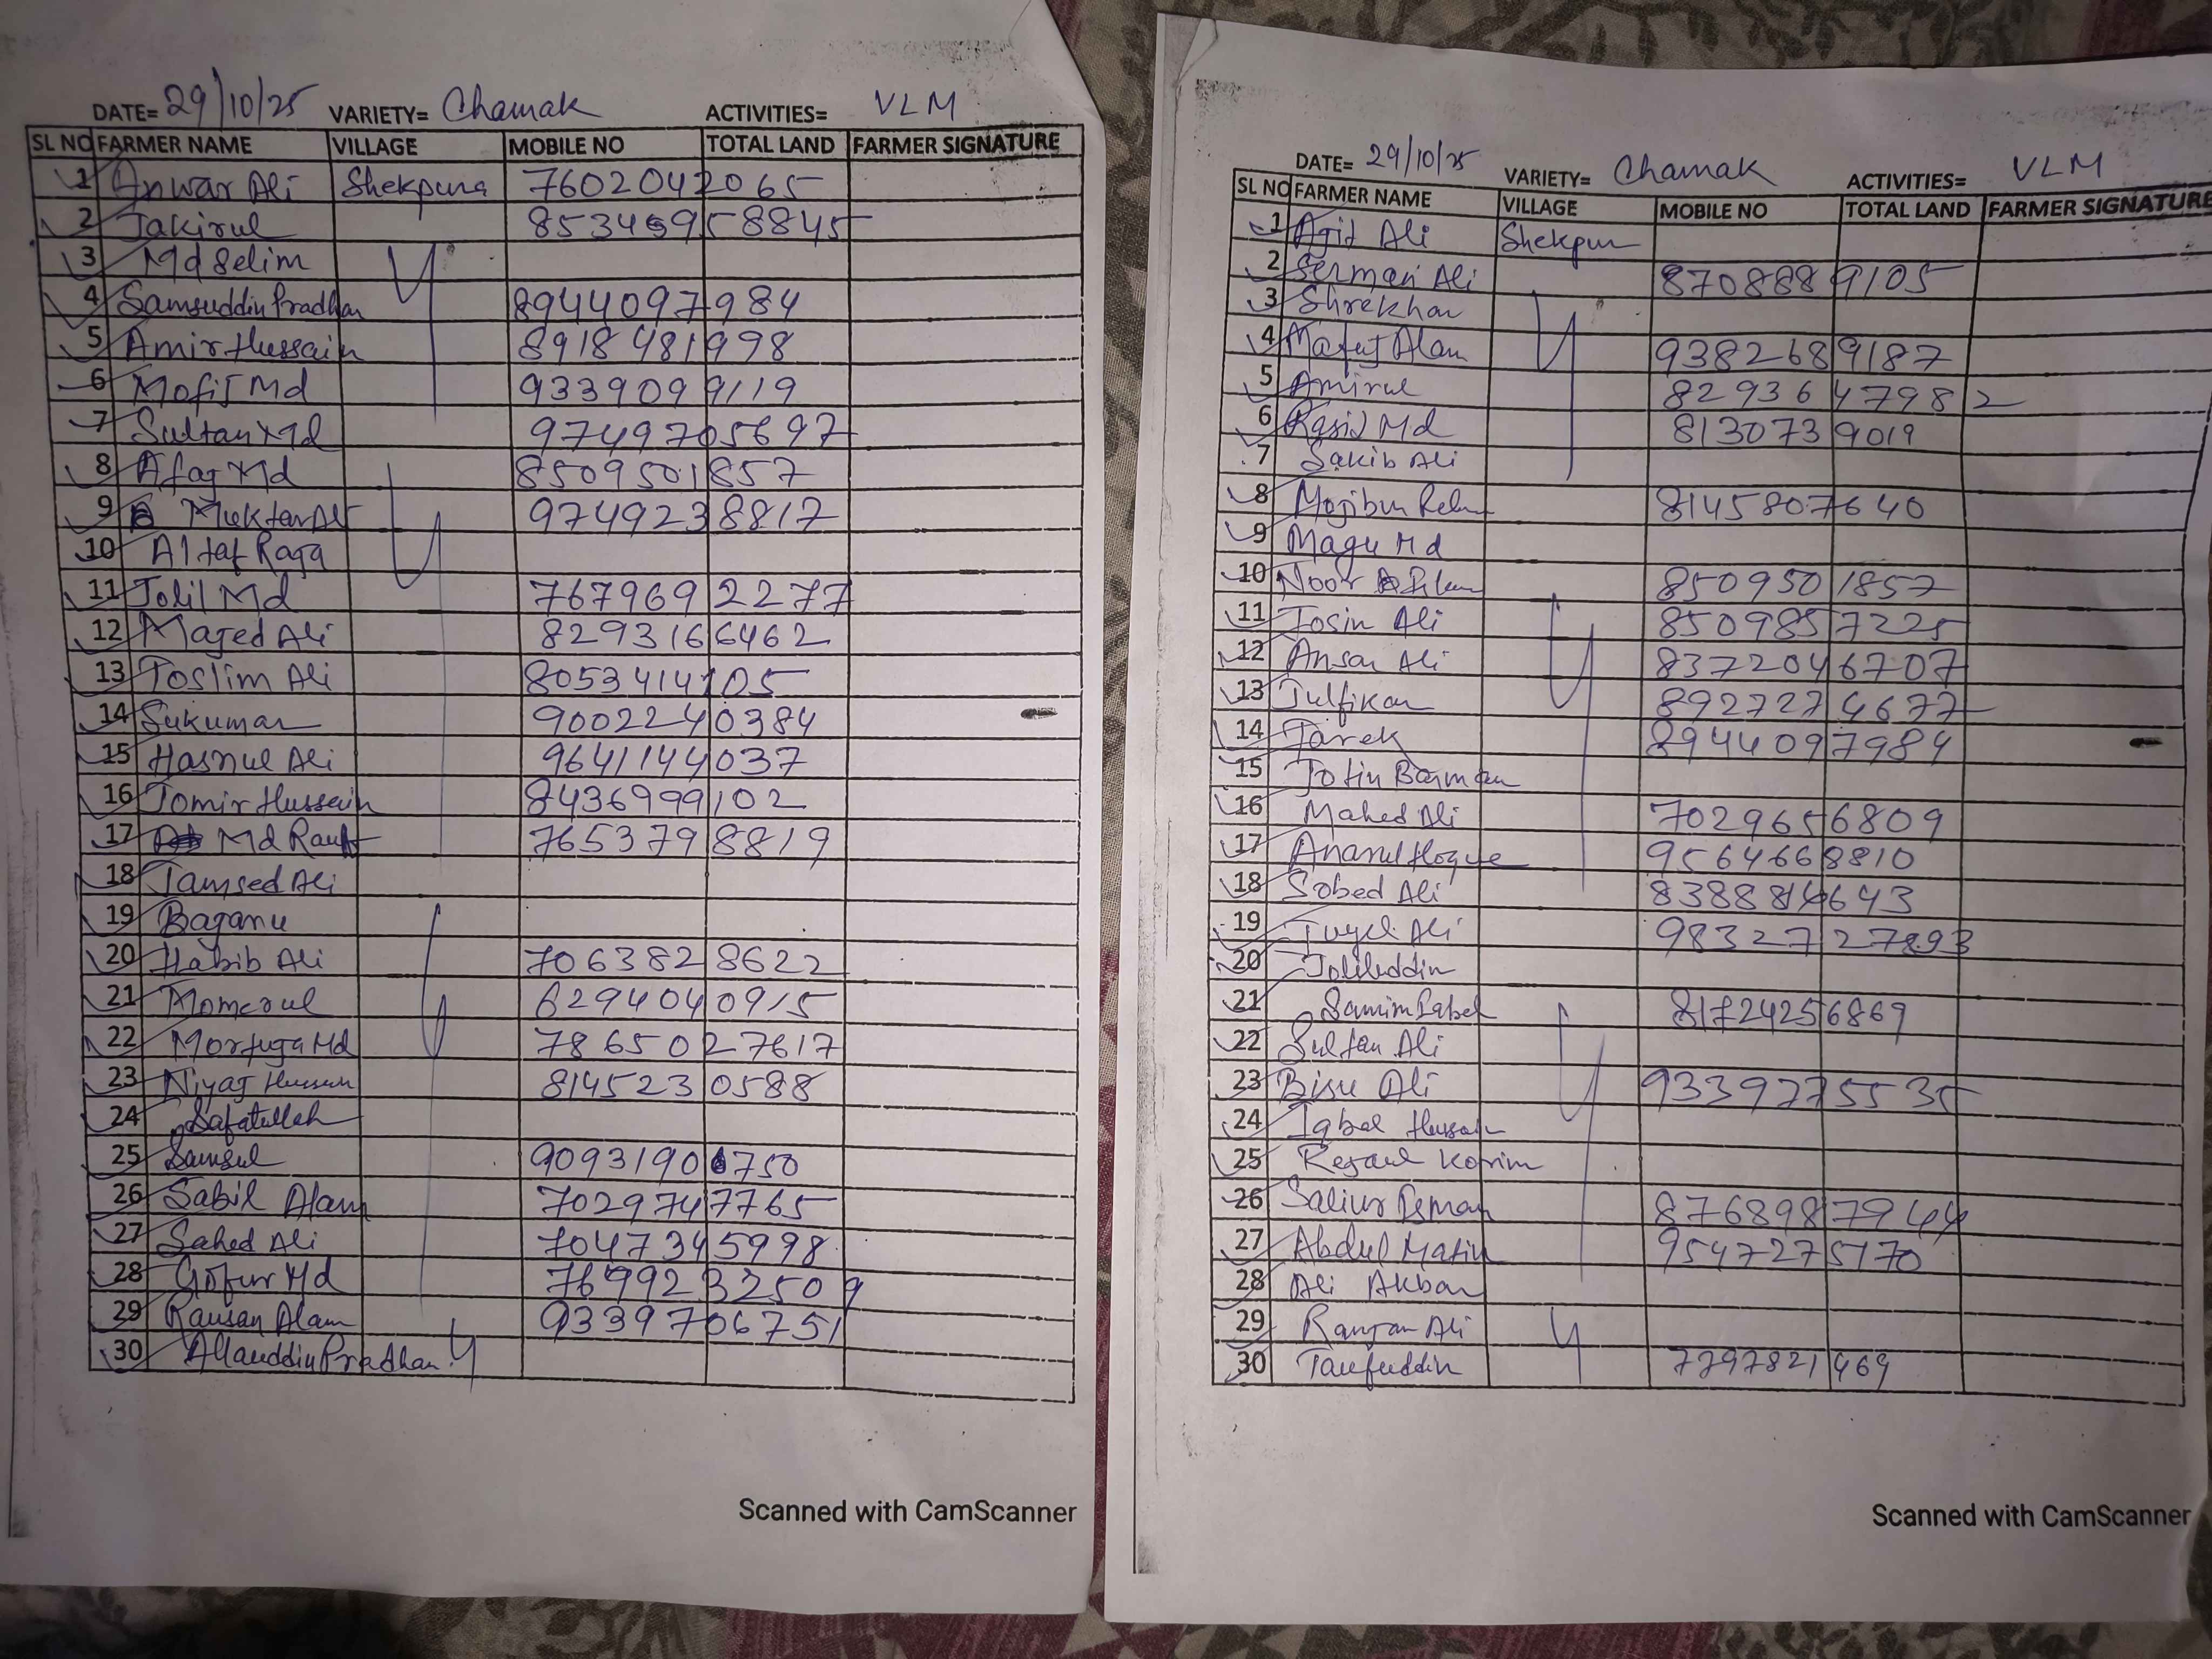 DATE= 29/10/25 VARIETY= Chamak ACTIVITIES= VLM
SL NO FARMER NAME VILLAGE MOBILE NO TOTAL LAND FARMER SIGNATURE
1 Anwar Ali Shekpura 7602042065
2 Jakirul 8534595 8845
3 Md Selim
4 Samsuddin Pradhan 8944097984
5 Amir Hussain 8918481998
6 Mofij Md 9339099119
7 Sultan Md 9749705697
8 Afaj Md 8509501857
9 Muktar Ali 9749238817
10 Altaf Raja
11 Jolil Md 7679692277
12 Majed Ali 8293166462
13 Toslim Ali 8053414105
14 Sukumar 9002240384
15 Hasnul Ali 9641144037
16 Jomir Hussain 8436999102
17 Md Rauf 7653798819
18 Jamsed Ali
19 Bajanu
20 Habib Ali 7063828622
21 Momerul 6294040915
22 Mortuja Md 7865027617
23 Niyaj Hussain 8145230588
24 Safatullah
25 Samsul 9093190750
26 Sabil Alam 7029747765
27 Sahed Ali 7047345998
28 Gofur Md 7699232509
29 Rausan Alam 9339706751
30 Allauddin Pradhan
Scanned with CamScanner
DATE= 29/10/25 VARIETY= Chamak ACTIVITIES= VLM
SL NO FARMER NAME VILLAGE MOBILE NO TOTAL LAND FARMER SIGNATURE
1 Ajit Ali Shekpur
2 Serman Ali 8708889105
3 Shrekhan
4 Mafuj Alam 9382689187
5 Amirul 8293647982
6 Rasid Md 8130739019
7 Sakib Ali
8 Mojibur Rehm 8145807640
9 Magu Md
10 Noor 8509501857
11 Josin Ali 8509857225
12 Ansar Ali 8372046707
13 Julfikar 8927274677
14 Tarek 8944097984
15 Jotin Barman
16 Mahed Ali 7029656809
17 Anarul Hoque 9564668810
18 Sobed Ali 8388814643
19 Juyel Ali 9832727893
20 Joliluddin
21 Samim Iqbal 81724256869
22 Sultan Ali
23 Bisu Ali 9339775535
24 Iqbal Hussain
25 Rejaul Korim
26 Saliur 8768987944
27 Abdul Matin 9547275170
28 Ali Akbar
29 Ranjan Ali
30 Taufuddin 7797821469
Scanned with CamScanner